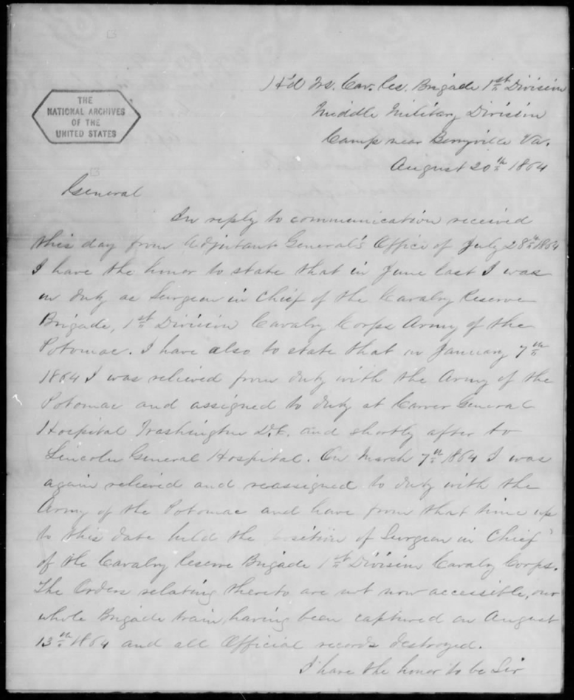 THE
NATIONAL ARCHIVES
OF THE
UNITED STATES
Hd Qrs. Cav. Res. Brigade 1st Division
Middle Military Division
Camp near Berryville Va.
August 20th 1864
General
In reply to communication received
this day from Adjutant General's Office of July 28th 1864
I have the honor to state that in June last I was
on duty as Surgeon in Chief of the Cavalry Reserve
Brigade, 1st Division Cavalry Corps Army of the
Potomac. I have also to state that on January 7th
1864 I was relieved from duty with the Army of the
Potomac and assigned to duty at Carver General
Hospital Washington D.C. and shortly after to
Lincoln General Hospital. On March 7th 1864 I was
again relieved and reassigned to duty with the
Army of the Potomac and have from that time up
to this date held the position of Surgeon in Chief
of the Cavalry Reserve Brigade 1st Division Cavalry Corps.
The Orders relating thereto are not now accessible, our
whole Brigade train having been captured on August
13th 1864 and all Official records destroyed.
I have the honor to be Sir